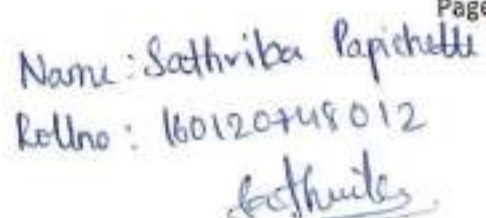 Page
Name: Sathviba Papichette
Rollno: 160120748012